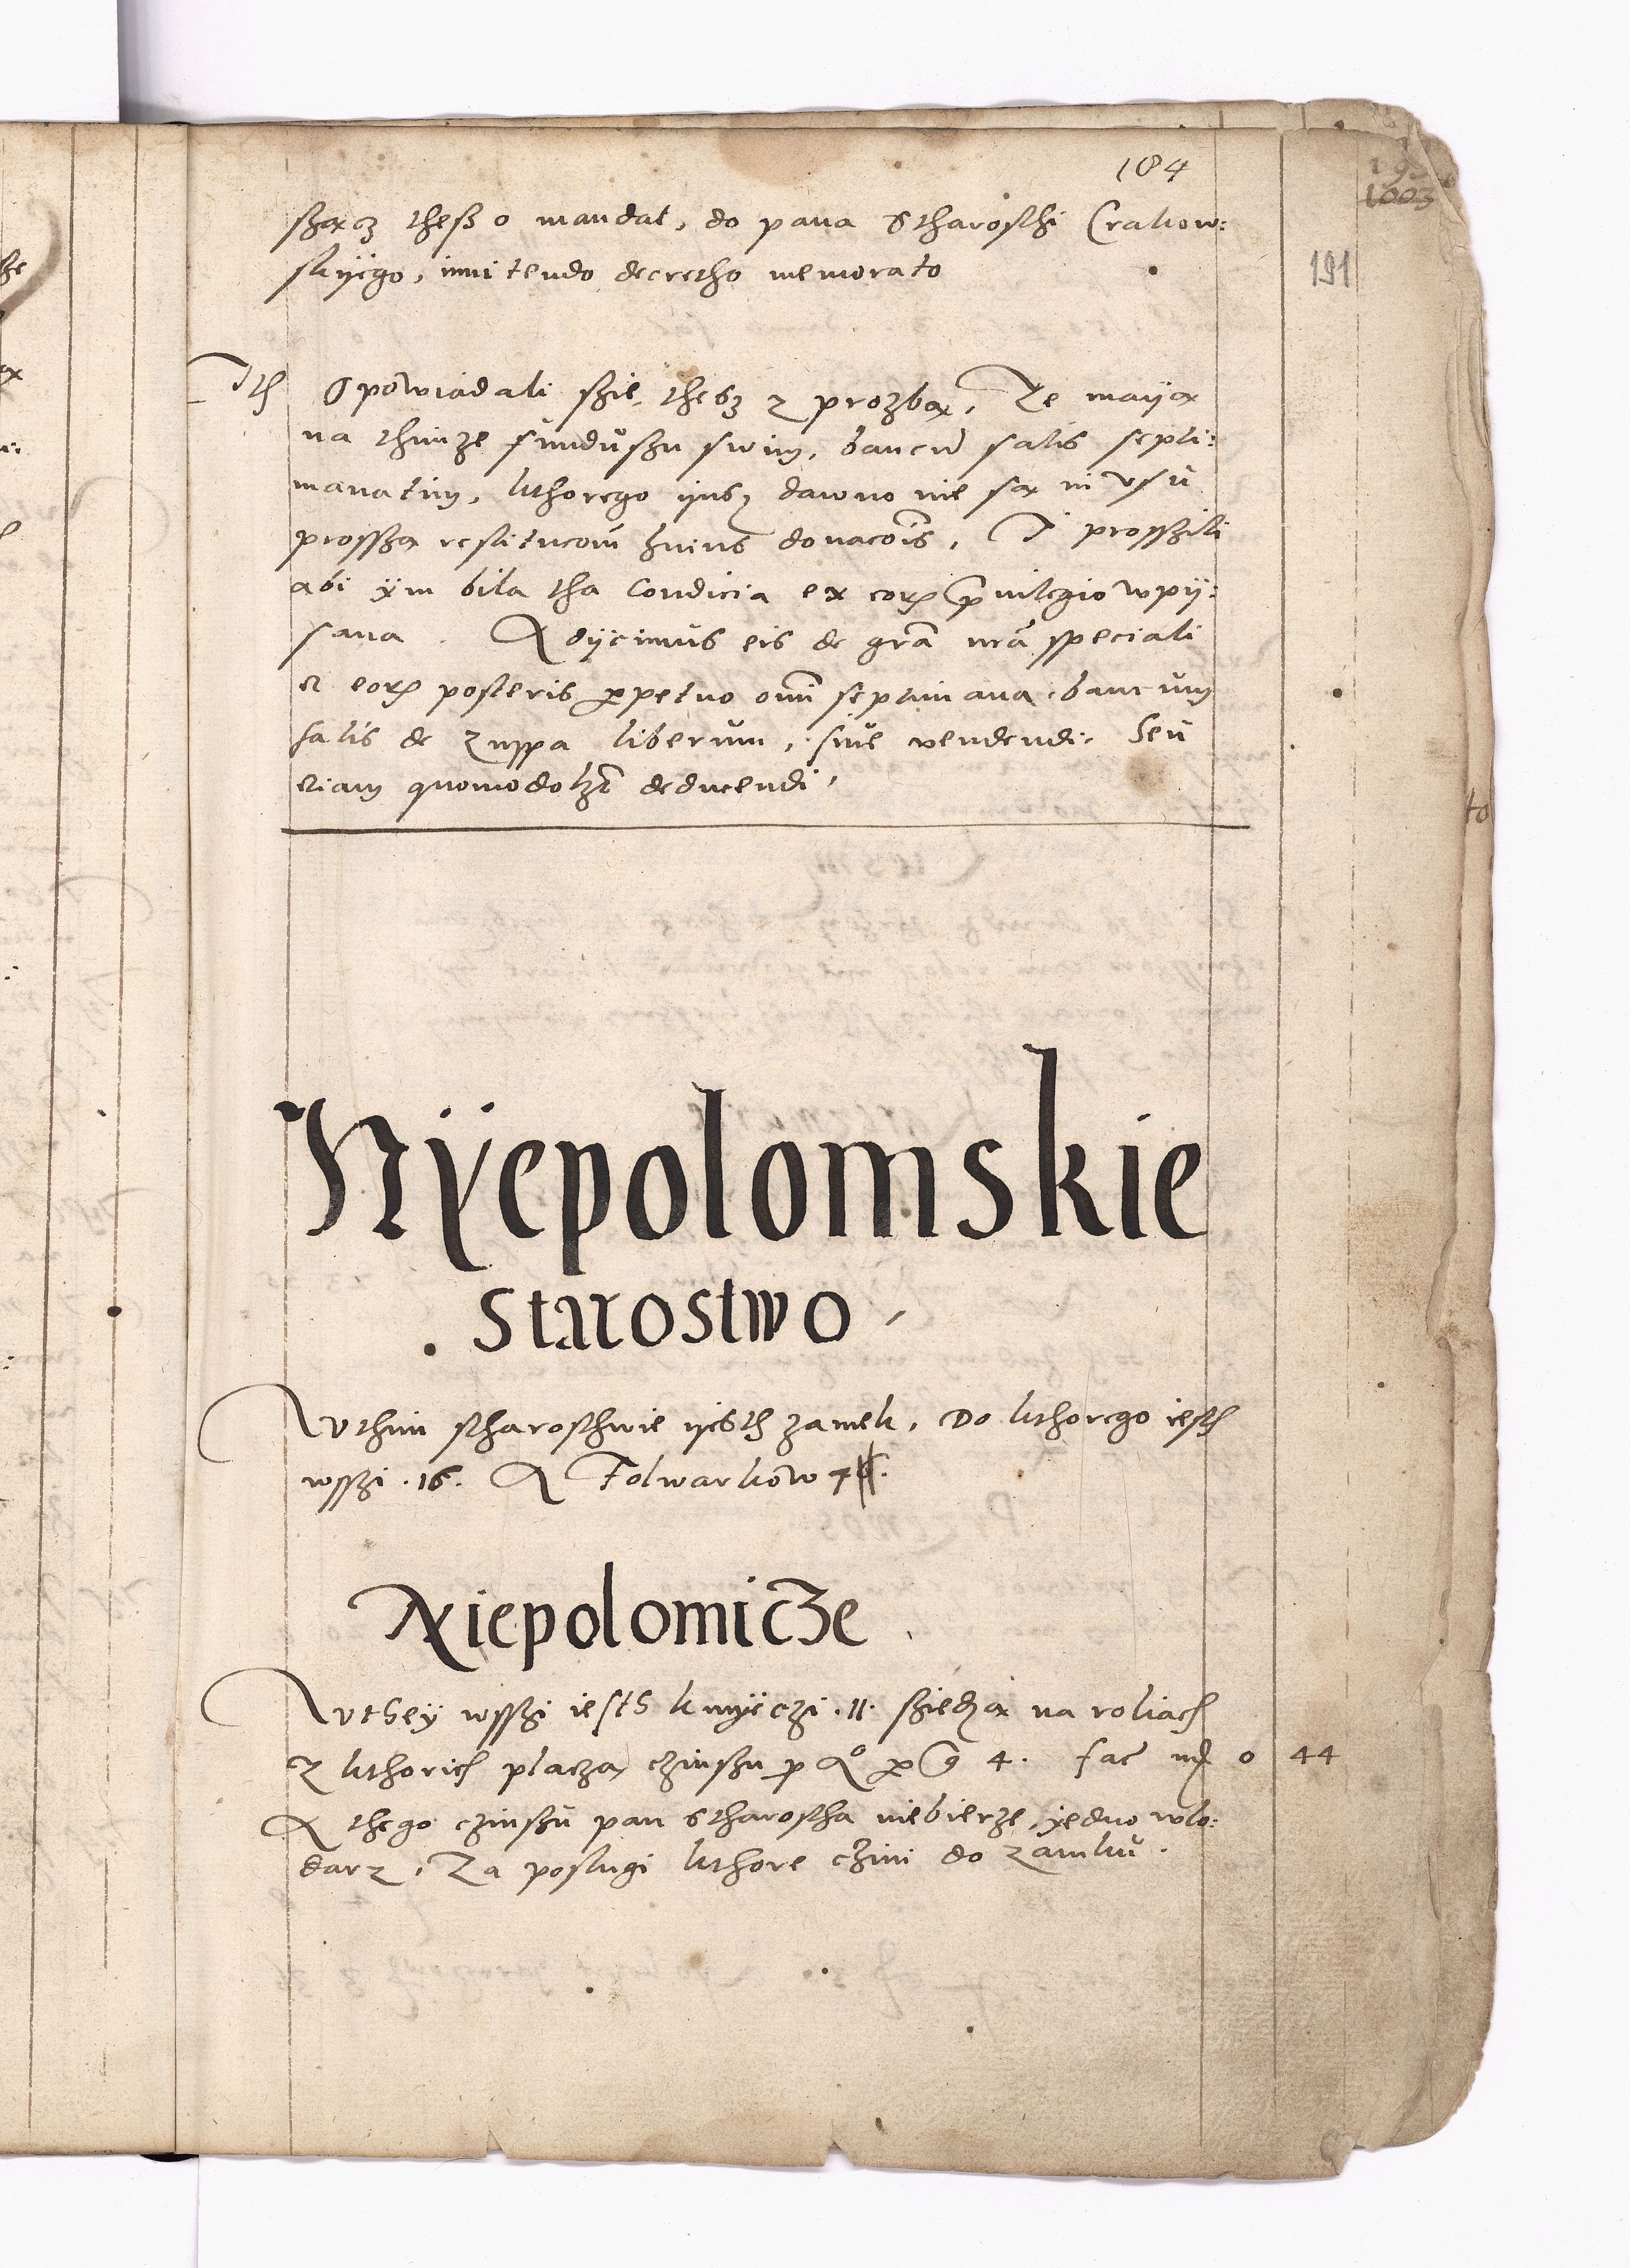 184
191
1003
szącz thesz o mandat, do pana Stharosthi Crakow:
skyego, innitendo decretho memorato
Ith Opowiadali szie thesz z prozbą, Ze mayą
na thimze funduszu swim, bancu salis septi:
manatim, kthorego yusz dawno nie są in usu
prosszą restituconi huius donacois, I prosszili
abi ym bila tha Condicia ex eor privilegio wpy:
sana. Adijcimus eis de gra nra speciali
et eor posteris perpetuo omi septimana bancum
salis de zuppa liberum, sive vendendi, Seu
etiam quomodolzt deducendi,
Nyepolomskie
Starostwo
W thim stharosthwie yesth zamek, Do kthorego iesth
wsszi .16. A Folwarkow 7
Niepolomicze
W they wsszi iesth kmyeczi .11. sziedzą na roliach
z kthorich placzą czinszu p Ao per g 4. fac mr 0 44
A thego czinszu pan Stharostha niebierze, yedno wlo:
darz, Za poslugi kthore czini do zamku.
to